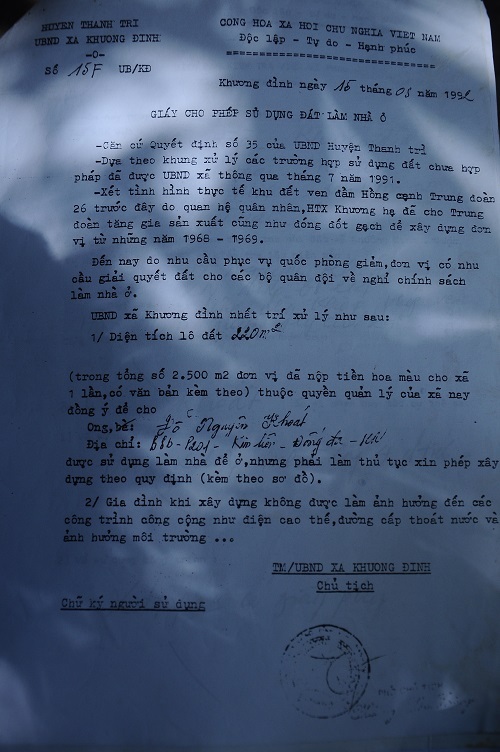 HUYEN THANH TRI
UBND XA KHUONG ĐINH
-o-
Số 15F UB/KĐ
CONG HOA XA HOI CHU NGHIA VIET NAM
Độc lập - Tự do - Hạnh phúc
==============================
Khương đình ngày 15 tháng 03 năm 1992
GIẤY CHO PHÉP SỬ DỤNG ĐẤT LÀM NHÀ Ở
-Căn cứ Quyết định số 35 của UBND Huyện Thanh trì
-Dựa theo khung xử lý các trường hợp sử dụng đất chưa hợp
pháp đã được UBND xã thông qua tháng 7 năm 1991.
-Xét tình hình thực tế khu đất ven đầm Hồng cạnh Trung đoàn
26 trước đây do quan hệ quân nhân,HTX Khương hạ đã cho Trung
đoàn tăng gia sản xuất cũng như đóng đốt gạch để xây dựng đơn
vị từ những năm 1968 - 1969.
Đến nay do nhu cầu phục vụ quốc phòng giảm,đơn vị có nhu
cầu giải quyết đất cho các bộ quân đội về nghỉ chính sách
làm nhà ở.
UBND xã Khương đình nhất trí xử lý như sau:
1/ Diện tích lô đất 220m2
(trong tổng số 2.500 m2 đơn vị đã nộp tiền hoa màu cho xã
1 lần,có văn bản kèm theo) thuộc quyền quản lý của xã nay
đồng ý để cho
Ông,bà: Nguyên Khoát
Địa chỉ: B16 - P201 - Kim liên - Đống đa - HN
được sử dụng làm nhà để ở,nhưng phải làm thủ tục xin phép xây
dựng theo quy định (kèm theo sơ đồ).
2/ Gia đình khi xây dựng không được làm ảnh hưởng đến các
công trình công cộng như điện cao thế,đường cấp thoát nước và
ảnh hưởng môi trường ...
TM/UBND XA KHUONG ĐINH
Chủ tịch
Chữ ký người sử dụng